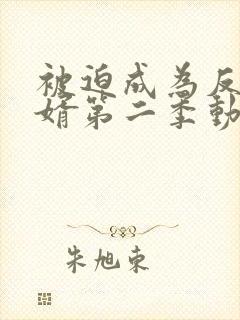 被迫成为反
婿第二季動
朱旭东